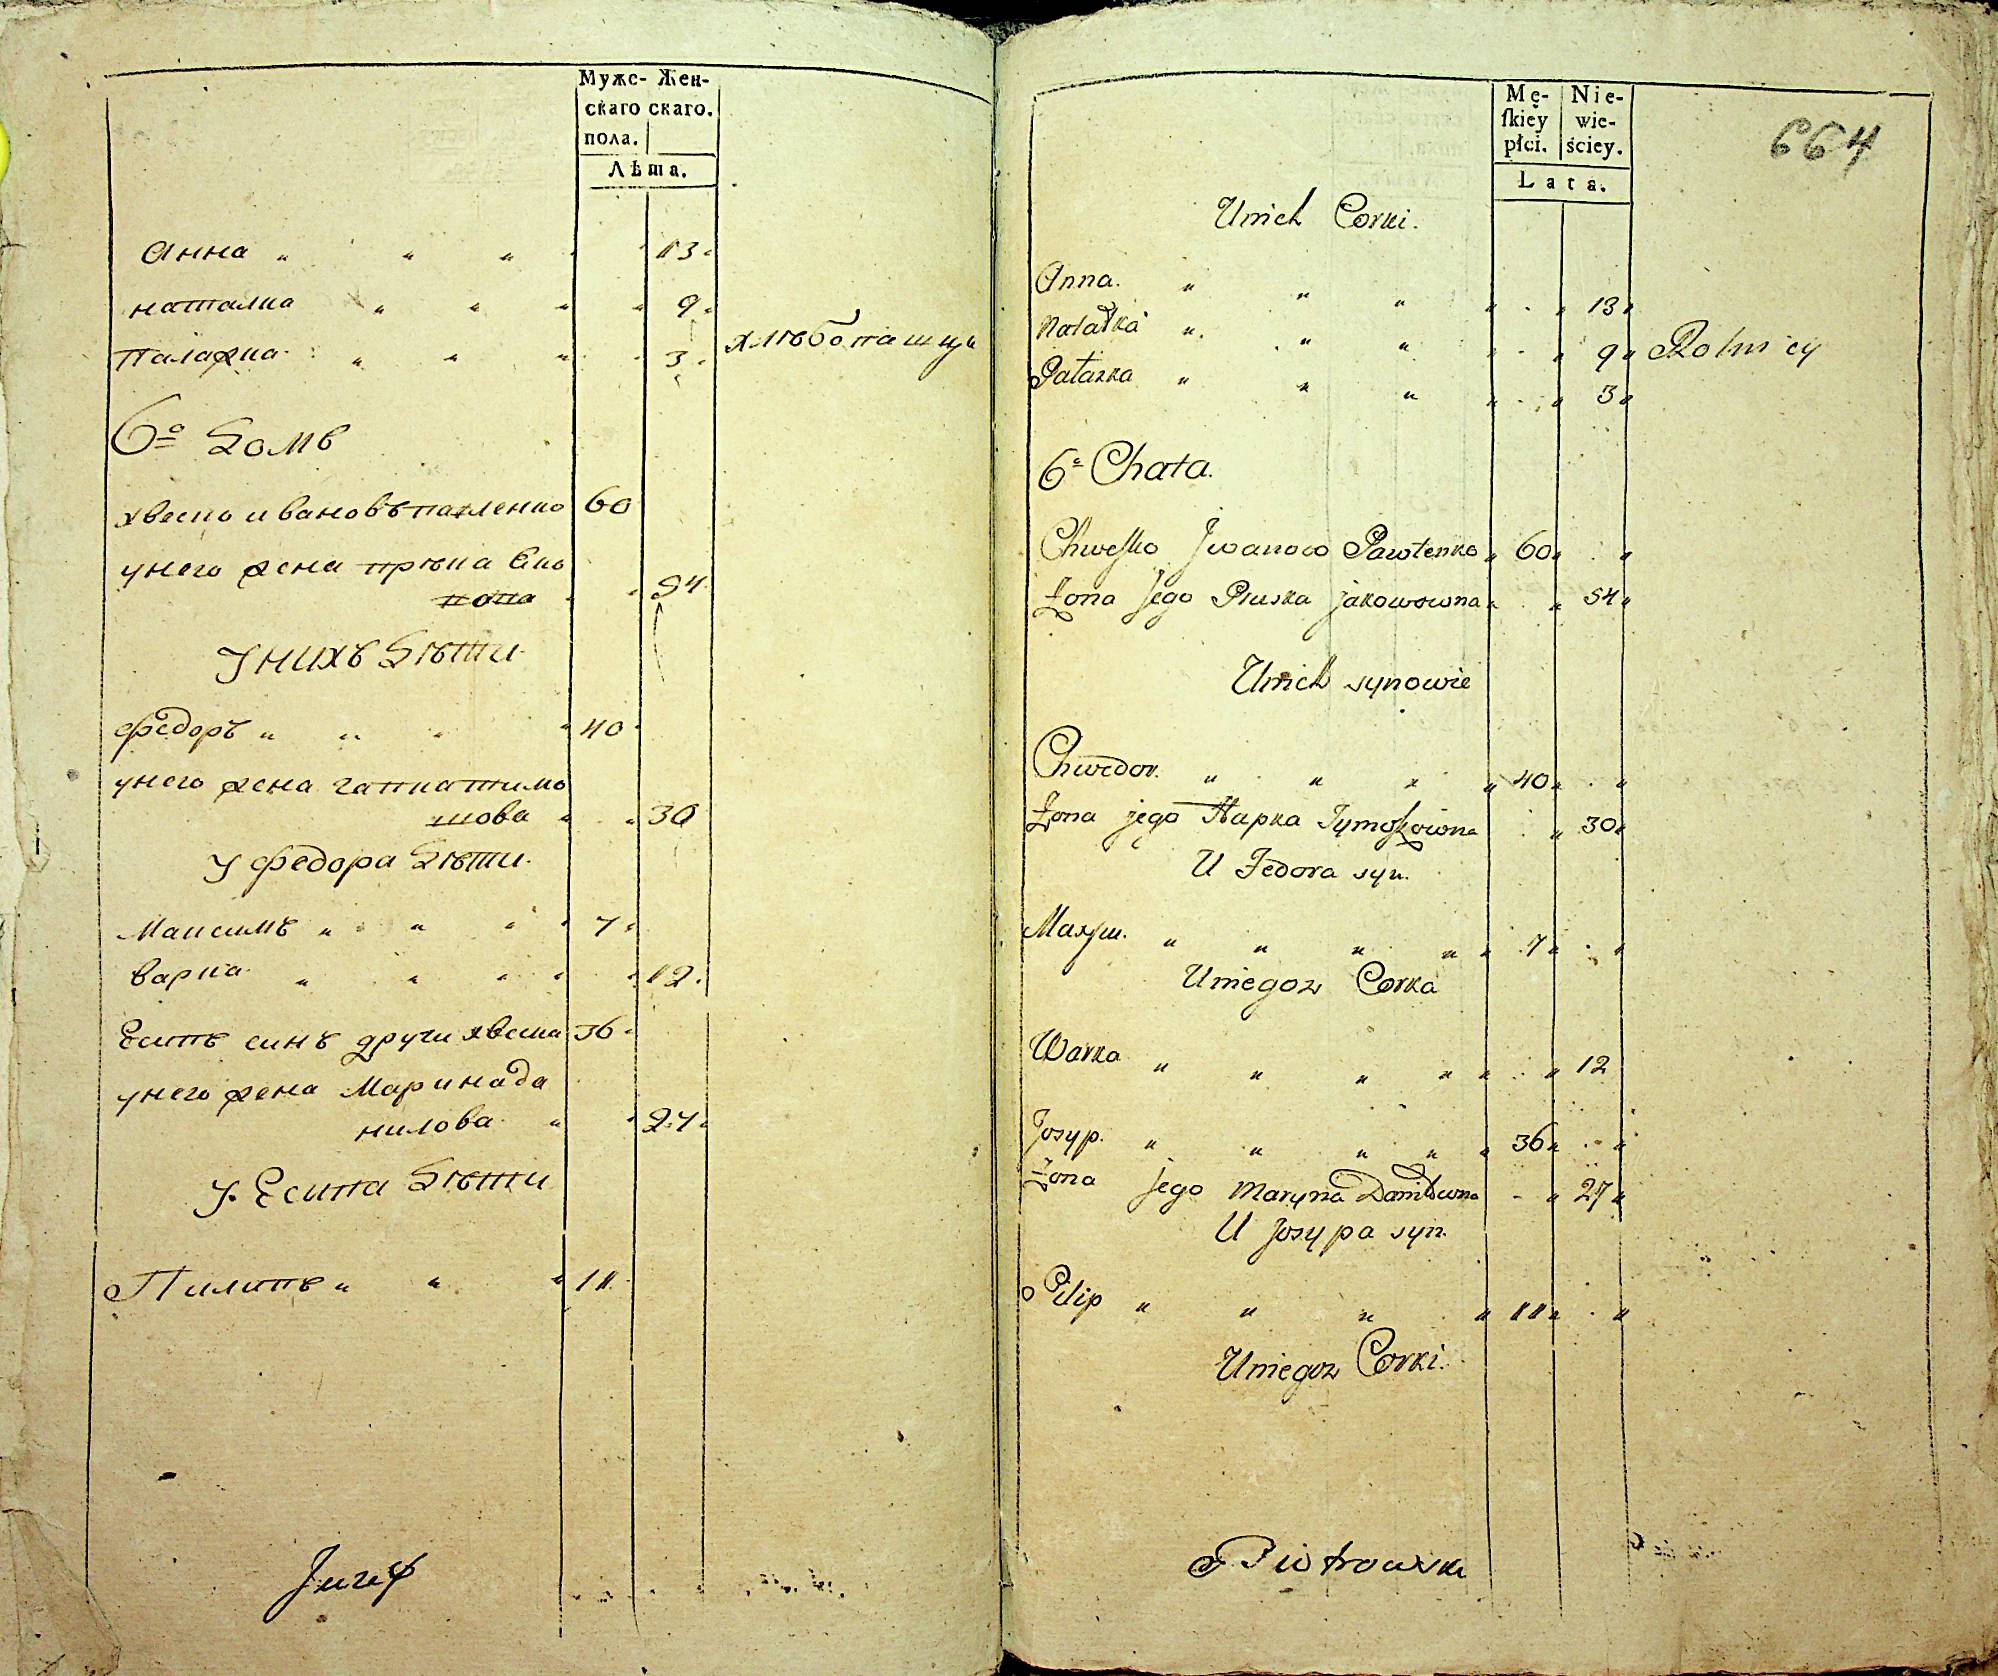 Мужс- Жен-
скаго скаго.
пола.
Лѣта.
Анна " " " " 13
наталка " " " " 9
Палажка " " " 3 хлѣбопашцы
6й домъ
хвеско ивановъ павленко 60
унего жена прѣска Яко
вова 54
Унихъ дѣти
Федоръ " " " 40
унего жена гапка тимо
шова " 30
у Федора дѣти
Максимъ " " " 7
варка " " " " 12
Есипъ синъ други хвеска 36
унего жена Марина да
нилова " 27
у Есипа дѣти
Пилипъ " " " 11
Juzef
Mę- Nie-
skiey wie-
płci. ściey.
Lata.
664
Unich Corki.
Anna. " " " " " 13
Natałka " " " " " 9 Rolnicy
Pałazka " " " " " 3
6a Chata.
Chwesko Jwanow Pawłenko 60
Żona Jego Pruska jakowowna 54
Unich synowie
Chwedor. " " " " 40
Żona jego Hapka Tymoszowna 30
U Fedora syn.
Maxym. " " " " 7
Uniegoz Corka
Warka " " " " " 12
Josyp. " " " " 36
Żona Jego Maryna Daniłowna 27
U Josypa syn.
Pilip " " " " 11
Uniegoz Corki.
Piotrowski